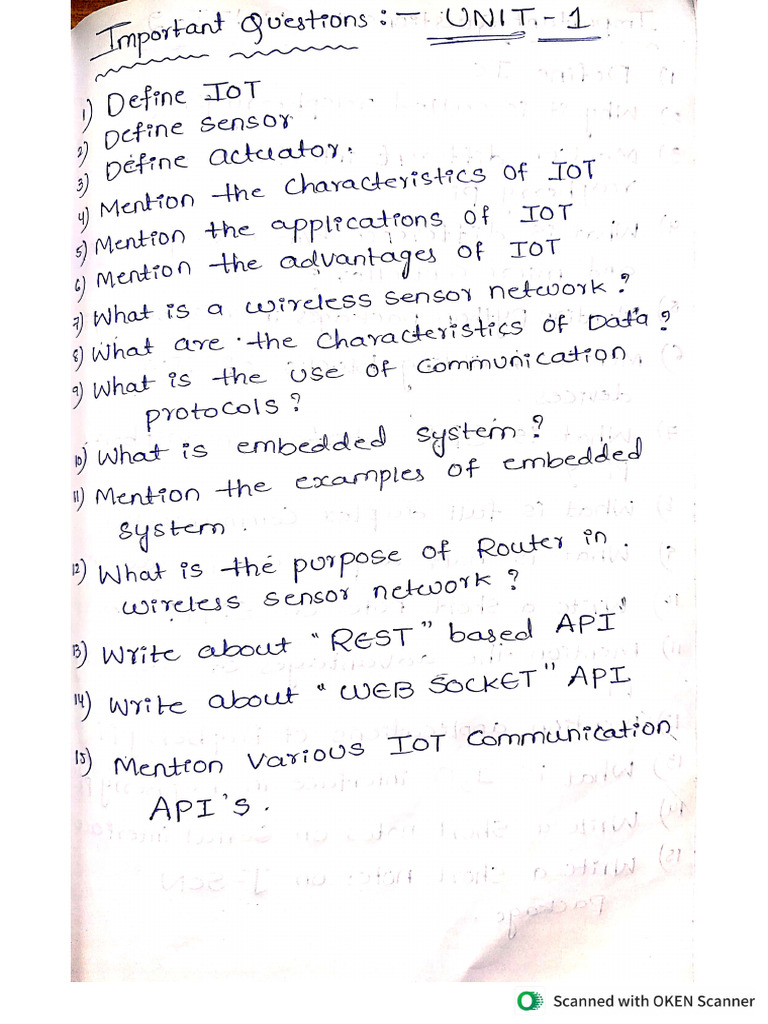 Important Questions :- UNIT.-1
1) Define IOT
2) Define sensor.
3) Define actuator.
4) Mention the characteristics of IOT
5) Mention the applications of IOT
6) Mention the advantages of IOT
7) What is a wireless sensor network?
8) What are the characteristics of Data?
9) What is the use of communication
protocols?
10) What is embedded system?
11) Mention the examples of embedded
system.
12) What is the purpose of Router in
wireless sensor network?
13) Write about "REST" based API
14) Write about "WEB SOCKET" API
15) Mention various IOT Communication
API's.
Scanned with OKEN Scanner